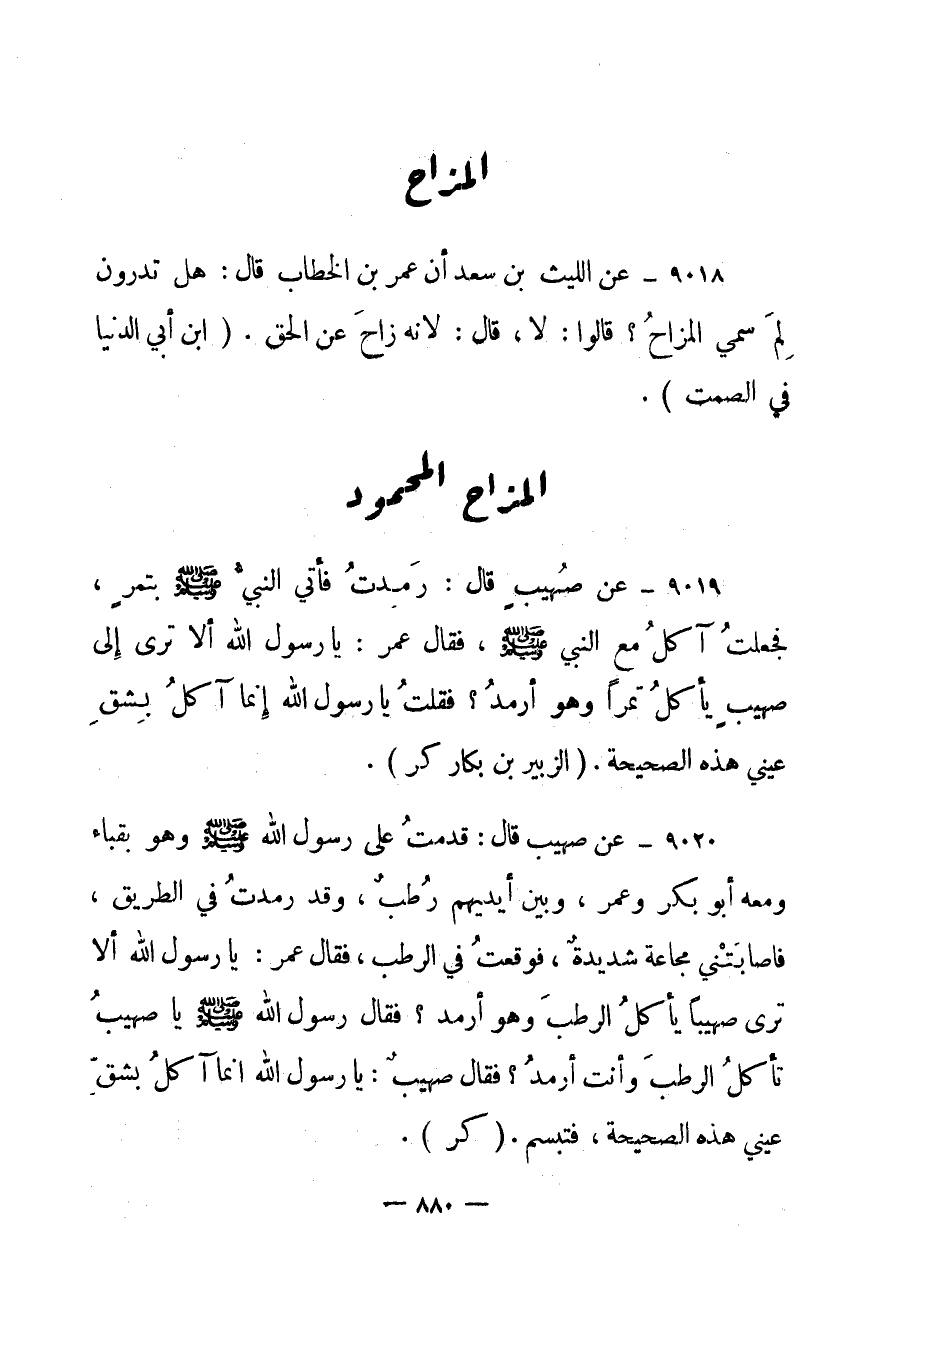 المزاح
٩٠١٨ ـ عن الليث بن سعد أن عمر بن الخطاب قال : هل تدرون
لِمَ سمي المزاحُ ؟ قالوا : لا ، قال : لانه زاحَ عن الحق . ( ابن أبي الدنيا
في الصمت ) .
المزاح المحمود
٩٠١٩ ـ عن صُهيبٍ قال : رَمِدتُ فأتي النبيُّ ﷺ بتمرٍ ،
فجعلتُ آكلُ مع النبي ﷺ ، فقال عمر : يا رسول الله ألا ترى إلى
صهيبٍ يأكلُ تمراً وهو أرمدُ ؟ فقلتُ يا رسول الله إنما آكلُ بِشقِ
عيني هذه الصحيحة . ( الزبير بن بكار كر ) .
٩٠٢٠ ـ عن صهيب قال : قدمتُ على رسول الله ﷺ وهو بقباء
ومعه أبو بكر وعمر ، وبين أيديهم رُطبٌ ، وقد رمدتُ في الطريق ،
فاصابَتْني مجاعة شديدةٌ ، فوقعتُ في الرطب ، فقال عمر : يا رسول الله ألا
ترى صهيباً يأكلُ الرطبَ وهو أرمد ؟ فقال رسول الله ﷺ يا صهيبُ
تأكلُ الرطبَ وأنت أرمدُ ؟ فقال صهيبٌ : يا رسول الله انما آكلُ بشقِّ
عيني هذه الصحيحة ، فتبسم . ( كر ) .
— ٨٨٠ —